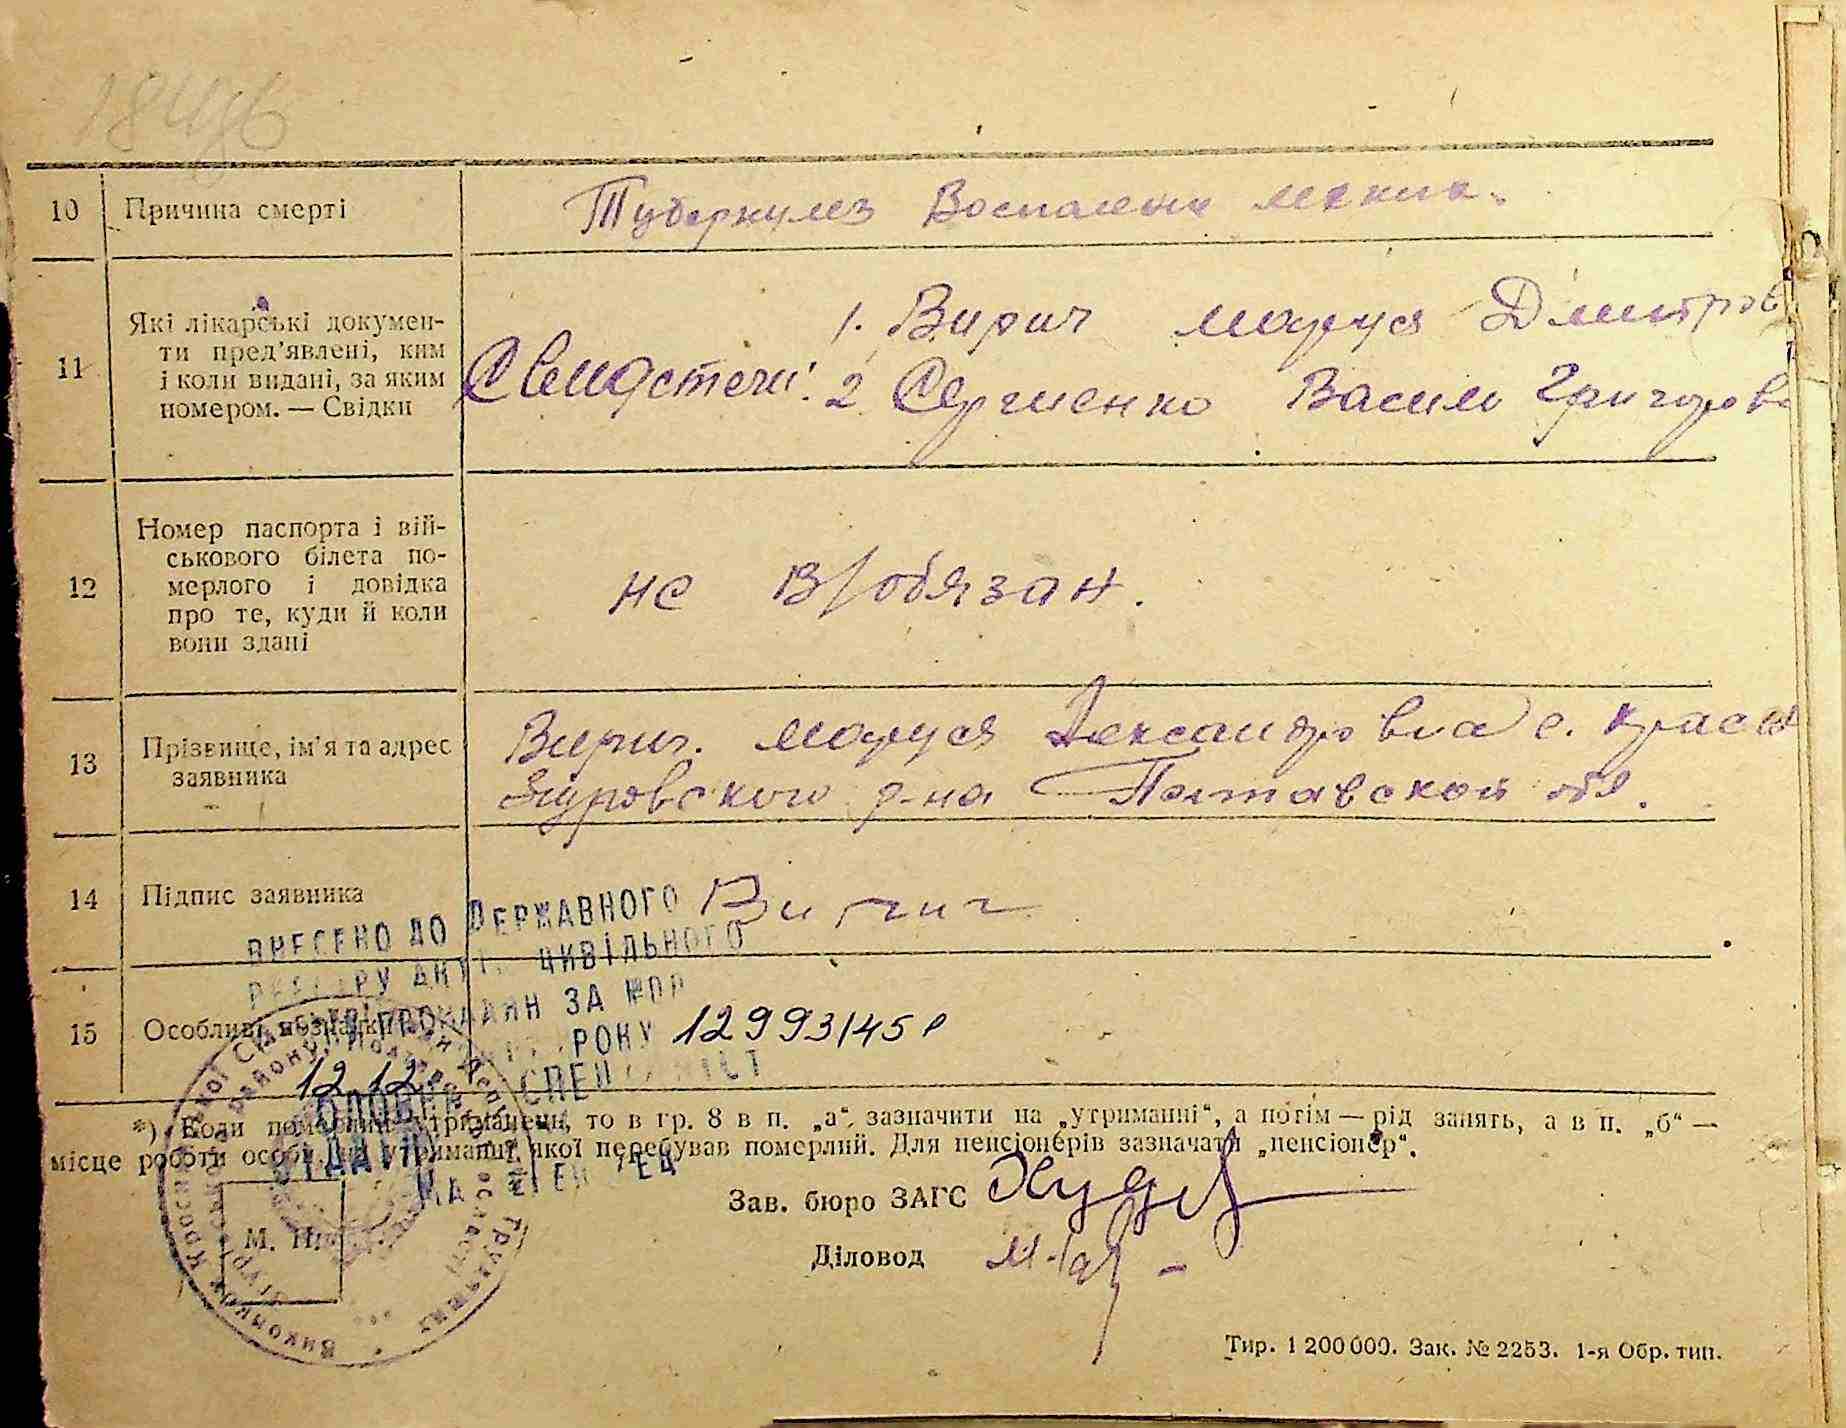 10 Причина смерті Туберкулез Воспаление легких.
11 Які лікарські докумен-
ти пред'явлені, ким
і коли видані, за яким
номером. — Свідки
1. Вирич Маруся Дмитров
Свидетели: 2 Сергиенко Васили Григоров
12 Номер паспорта і вій-
ськового білета по-
мерлого і довідка
про те, куди й коли
вони здані
не в/обязан.
13 Прізвище, ім'я та адрес
заявника
Вирич. Маруся Александровна с. Красн
Згуровского р-на Полтавской обл.
14 Підпис заявника Вирич
ВНЕСЕНО ДО ДЕРЖАВНОГО
РЕЄСТРУ АКТІВ ЦИВІЛЬНОГО
ЗА
15 Особливі РОКУ 12993/45р
12.12. СПЕЦІАЛІСТ
*) Коли померлий утриманець, то в гр. 8 в п. „а“ зазначити на „утриманні“, а потім — рід занять, а в п. „б“ —
місце роботи особи, на утриманні якої перебував померлий. Для пенсіонерів зазначати „пенсіонер“.
Зав. бюро ЗАГС
М. П.
Діловод
Тир. 1 200 000. Зак. № 2253. 1-я Обр. тип.